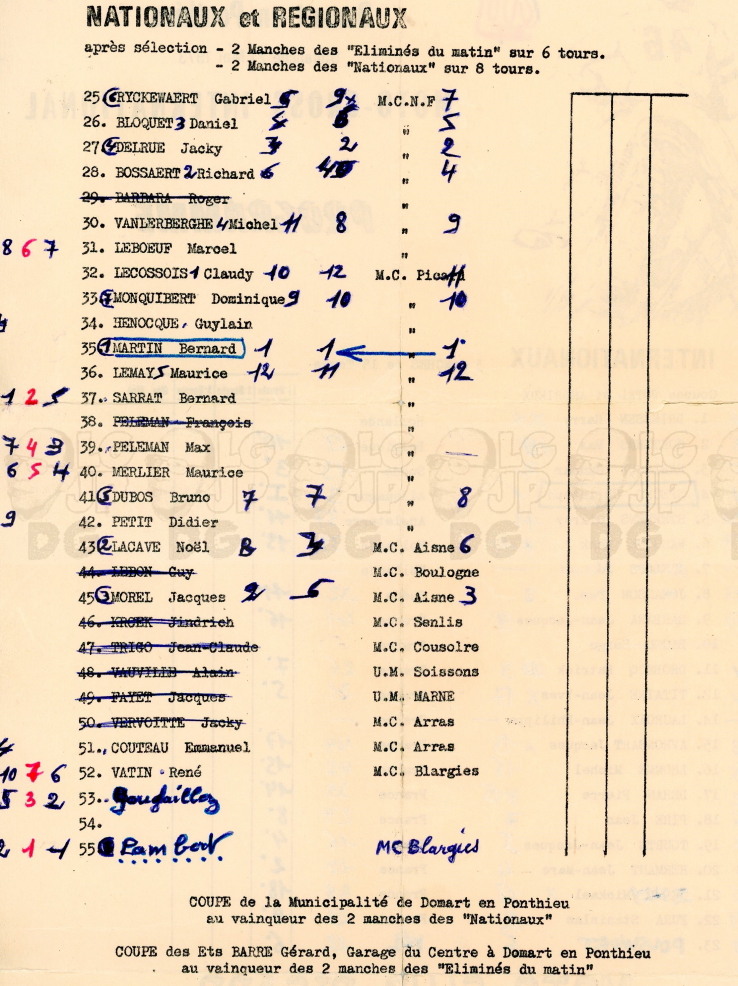 NATIONAUX et REGIONAUX
après sélection - 2 Manches des "Eliminés du matin" sur 6 tours.
- 2 Manches des "Nationaux" sur 8 tours.
25 6 RYCKEWAERT Gabriel M.C.N.F 7
26. BLOQUET 3 Daniel " 5
27 4 DELRUE Jacky 2 " 2
28. BOSSAERT 2 Richard 6 " 4
29. BARBARA Roger "
30. VANLERBERGHE 4 Michel 11 8 " 9
8 6 7 31. LEBOEUF Marcel "
32. LECOSSOIS 1 Claudy 10 12 M.C. Picard 11
33 7 MONQUIBERT Dominique 9 10 " 10
34. HENOCQUE Guylain "
35 1 MARTIN Bernard 1 1 " 1
36. LEMAY 5 Maurice 12 11 " 12
1 2 5 37. SARRAT Bernard "
38. PELEMAN François "
7 4 3 39. PELEMAN Max "
6 5 4 40. MERLIER Maurice "
41 5 DUBOS Bruno 7 7 " 8
9 42. PETIT Didier "
43 2 LACAVE Noël M.C. Aisne 6
44. LEBON Guy M.C. Boulogne
45 3 MOREL Jacques 2 5 M.C. Aisne 3
46. KROEK Jindrich M.C. Senlis
47. TRIGO Jean-Claude M.C. Cousolre
48. VAUVILLE Alain U.M. Soissons
49. PAYET Jacques U.M. MARNE
50. VERVOITTE Jacky M.C. Arras
51. COUTEAU Emmanuel M.C. Arras
10 7 6 52. VATIN René M.C. Blargies
5 3 2 53.
54.
2 1 1 55 Lambert MC Blargies
COUPE de la Municipalité de Domart en Ponthieu
au vainqueur des 2 manches des "Nationaux"
COUPE des Ets BARRE Gérard, Garage du Centre à Domart en Ponthieu
au vainqueur des 2 manches des "Eliminés du matin"